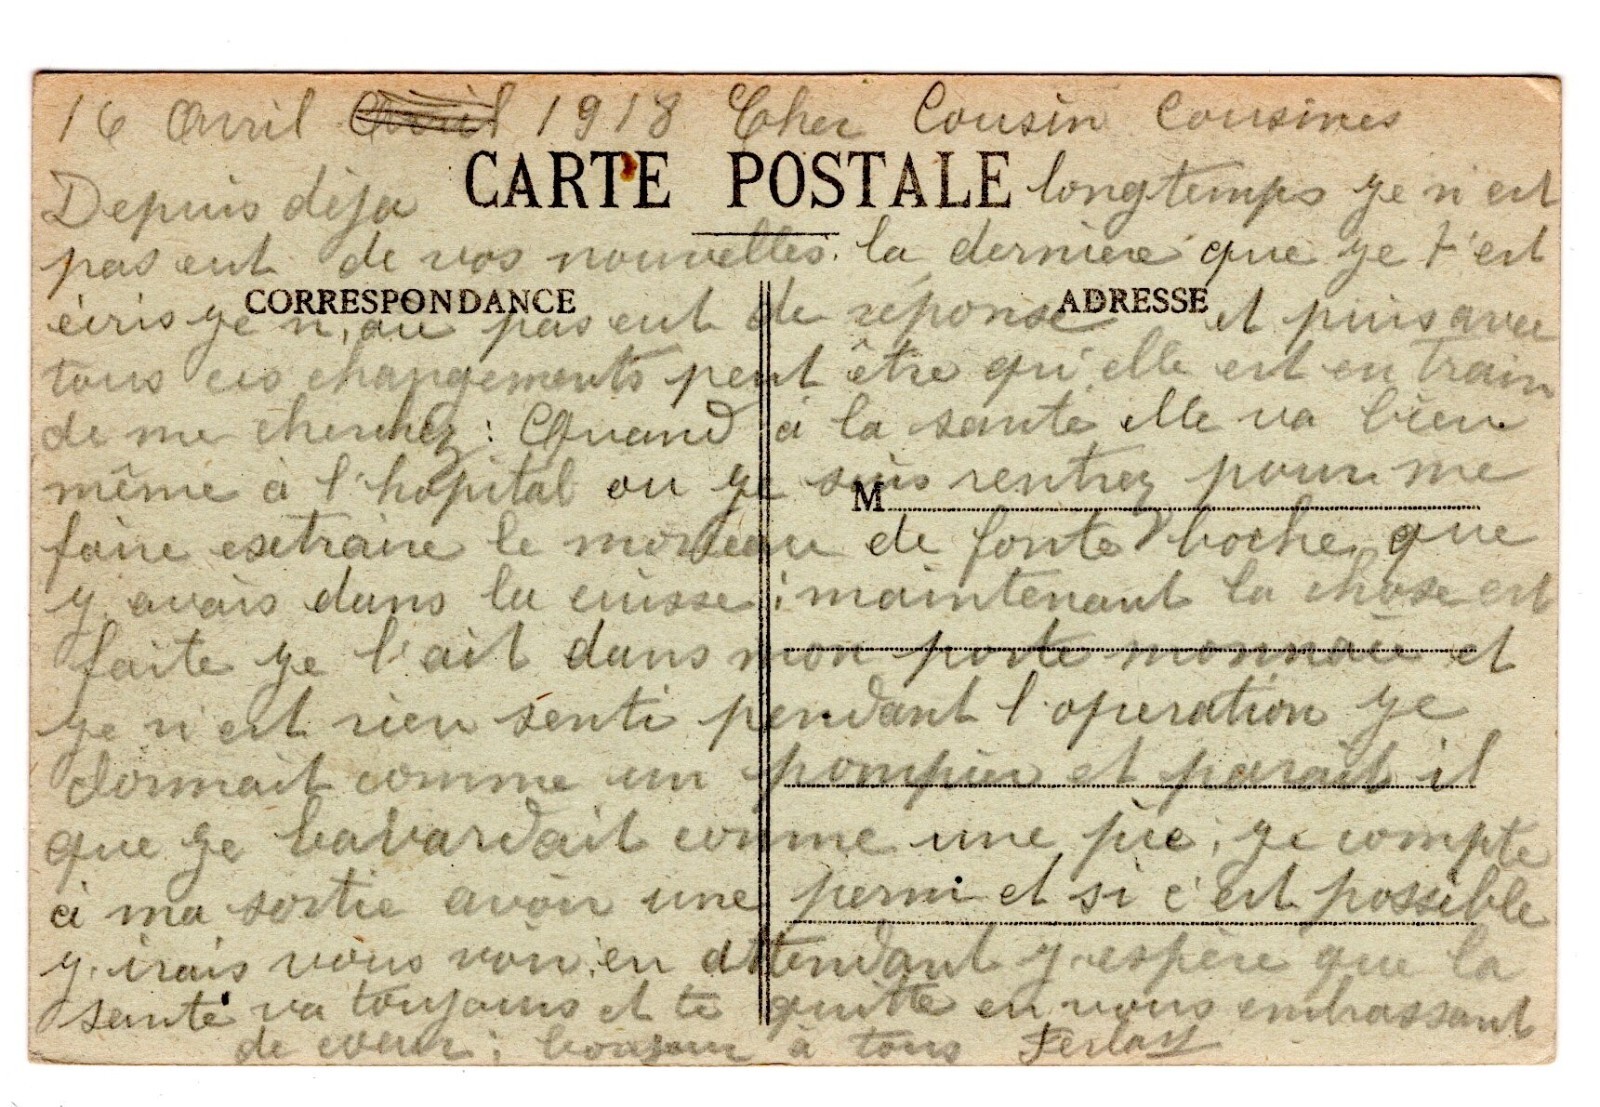 16 Avril Avril 1918 Cher Cousin Cousines
CARTE POSTALE
Depuis déja longtemps ge n'est
pas eut de vos nouvelles. la derniere que ge t'est
CORRESPONDANCE
ADRESSE
écris ge n'au pas eut de réponse et puis avec
tous ces changements peut être qu'elle est en train
de me cherchez : Quand à la santé elle va bien
même à l'hôpital ou ge suis rentrez pour me
M
faire extraire le morceau de fonte boche que
g. avais dans la cuisse ; maintenant la chose est
faite ge l'ait dans mon porte monnaie et
ge n'est rien senti pendant l'operation ge
dormait comme un pompier et parait il
que ge bavardait comme une pie ; ge compte
à ma sortie avoir une permi et si c'est possible
g. irais vous voir. en attendant g. espère que la
santé va toujours et te quitte en vous embrassant
de cœur ; bonjour à tous